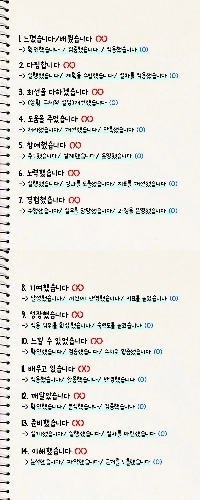 1. 느꼈습니다/배웠습니다 (X)
→ 확인했습니다 / 적용했습니다 (O)
2. 다짐합니다 (X)
→ 실행했습니다 / 계획을 수립했습니다 / 절차를 적용했습니다 (O)
3. 최선을 다하겠습니다 (X)
→ 개선했습니다 (O)
4. 도움을 주었습니다 (X)
→ 개선했습니다 / (O)
5. 참여했습니다 (X)
→ 담당했습니다 / 운영했습니다 (O)
6. 노력했습니다 (X)
→ 실행했습니다 / 성과를 도출했습니다 / 지표를 개선했습니다 (O)
7. 경험했습니다 (X)
→ 수행했습니다 / 실무를 담당했습니다 / 과정을 운영했습니다 (O)
8. 기여했습니다 (X)
→ 달성했습니다 / 개선에 반영했습니다 / 지표를 높였습니다 (O)
9. 성장했습니다 (X)
→ 적용 범위를 확장했습니다 / 숙련도를 높였습니다 (O)
10. 느낄 수 있었습니다 (X)
→ 확인했습니다 / 검증했습니다 / (O)
11. 배우고 있습니다 (X)
→ 적용했습니다 / 활용했습니다 / 반영했습니다 (O)
12. 깨달았습니다 (X)
→ 확인했습니다 / 분석했습니다 / 검증했습니다 (O)
13. 준비했습니다 (X)
→ 설계했습니다 / 실행했습니다 / 절차를 마련했습니다 (O)
14. 이해했습니다 (X)
→ 분석했습니다 / 파악했습니다 / 근거를 도출했습니다 (O)